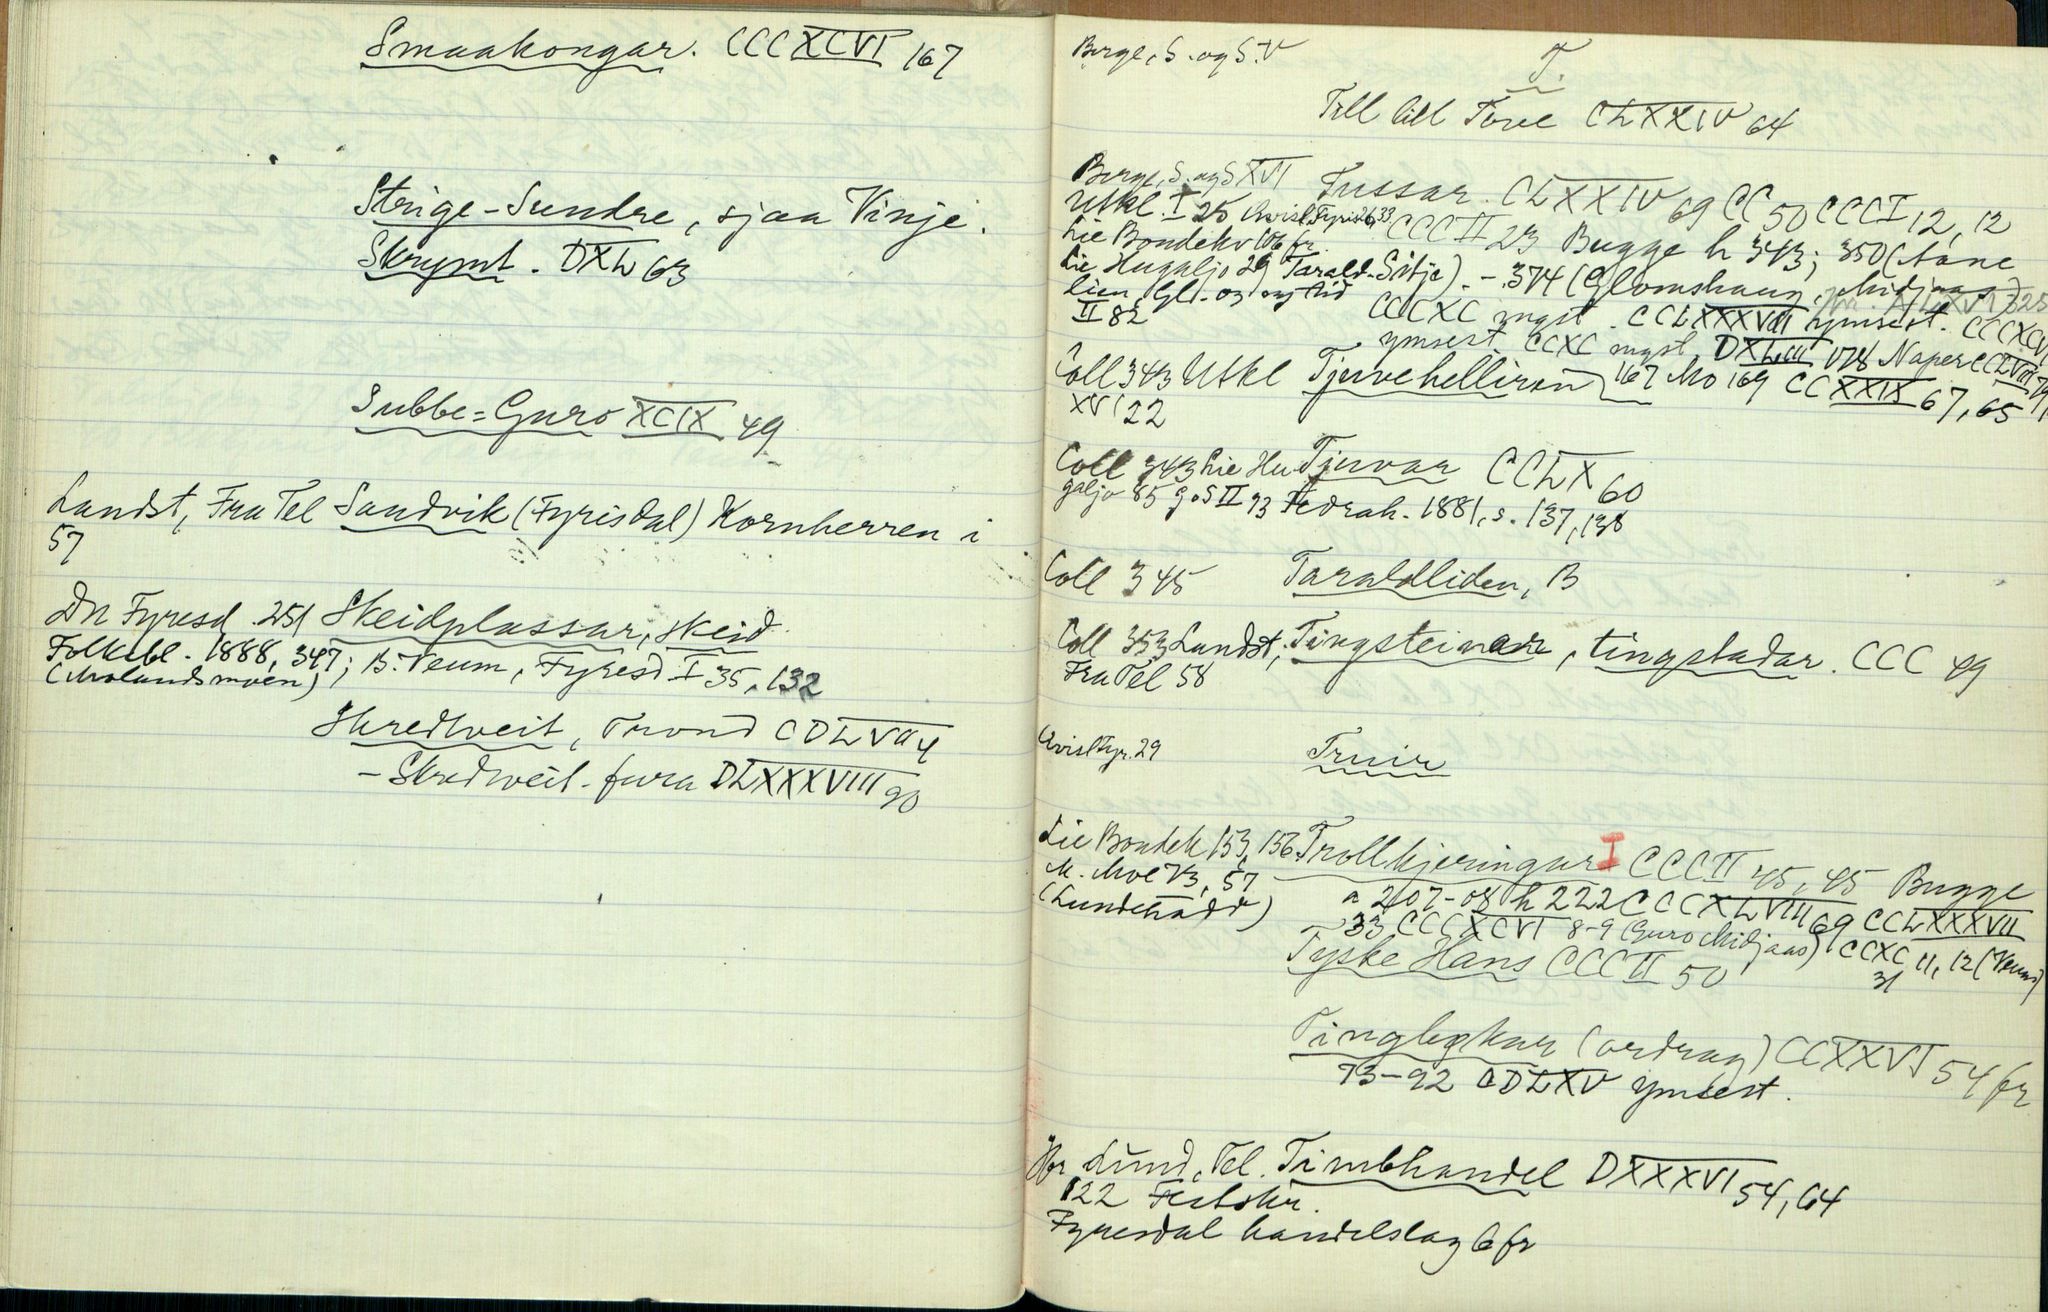 Smaakongar. CCCXCVI 167
Strige-Sundre, sjaa Vinje.
Skrymt. DXL 63
Subbe-Guro XCIX 49
Landst, Fra Tel Sandvik (Fyrisdal) Kornherren i
57
DN Fyresd. 251 Skeidplassar, skeid
Folkebl. 1888, 347; B. Veum, Fyresd I 35, 132
(Molandsmoen)
Skredtveit, Trond CDLVII 4
- Skredtveit-fura DLXXXVIII 90
Berge, S. og S. V
T.
Till lill Tove CLXXIV 64
Berge, S. og S XVI Tussar. CLXXIV 69 CC 50 CCCI 12, 12
Utkl I 25 Kvisl. Fyri 26, 33 CCCII 23 Bugge h 343; 350 (Aane
Lie Bondekv 106 fr.
Lie Hugaljo 29 Tarald-Sitje). - 374 (Glomshaug, Midjaas)
Lien, Gl. og ny tid CCCXC mgst. CCLXXXVIII ymsest. CCCXCVI
II 82 ymsest CCXC mgst. DXLIII 178 Naper CCLVIII 79
Coll 343 Utkl Tjuvehelliren 167 Mo 169 CCXXIX 67, 65
XVI 22
Coll 343 Lie Hu- Tjuvar CCLX 60
galjo 85 G. o S II 93 Fedrah. 1881, s. 137, 138
Coll 345 Taraldliden, B
Coll 353 Landst, Tingsteinar, tingstadar. CCC 49
Fra Tel 58
Kvisl Fyr. 29 Truir
Lie Bondek 153, 156 Trollkjeringar I CCCII 45, 45 Bugge
M. Moe 73, 57 a 207-08 h 222 CCCXLVIII 69 CCLXXXVII
(Lundevadd) 33 CCCXCVI 8-9 (Guro Midjaas) CCXC 11, 12 (Veum)
31
Tyske Hans CCCII 50
Tinglykur (ordrag) CCXXVI 54 fr
73-92 CDLXV ymsest.
Hr Lund, Tel. Timbhandel DXXXVI 54, 64
122 Festskr.
Fyresdal handelslag 6 fr